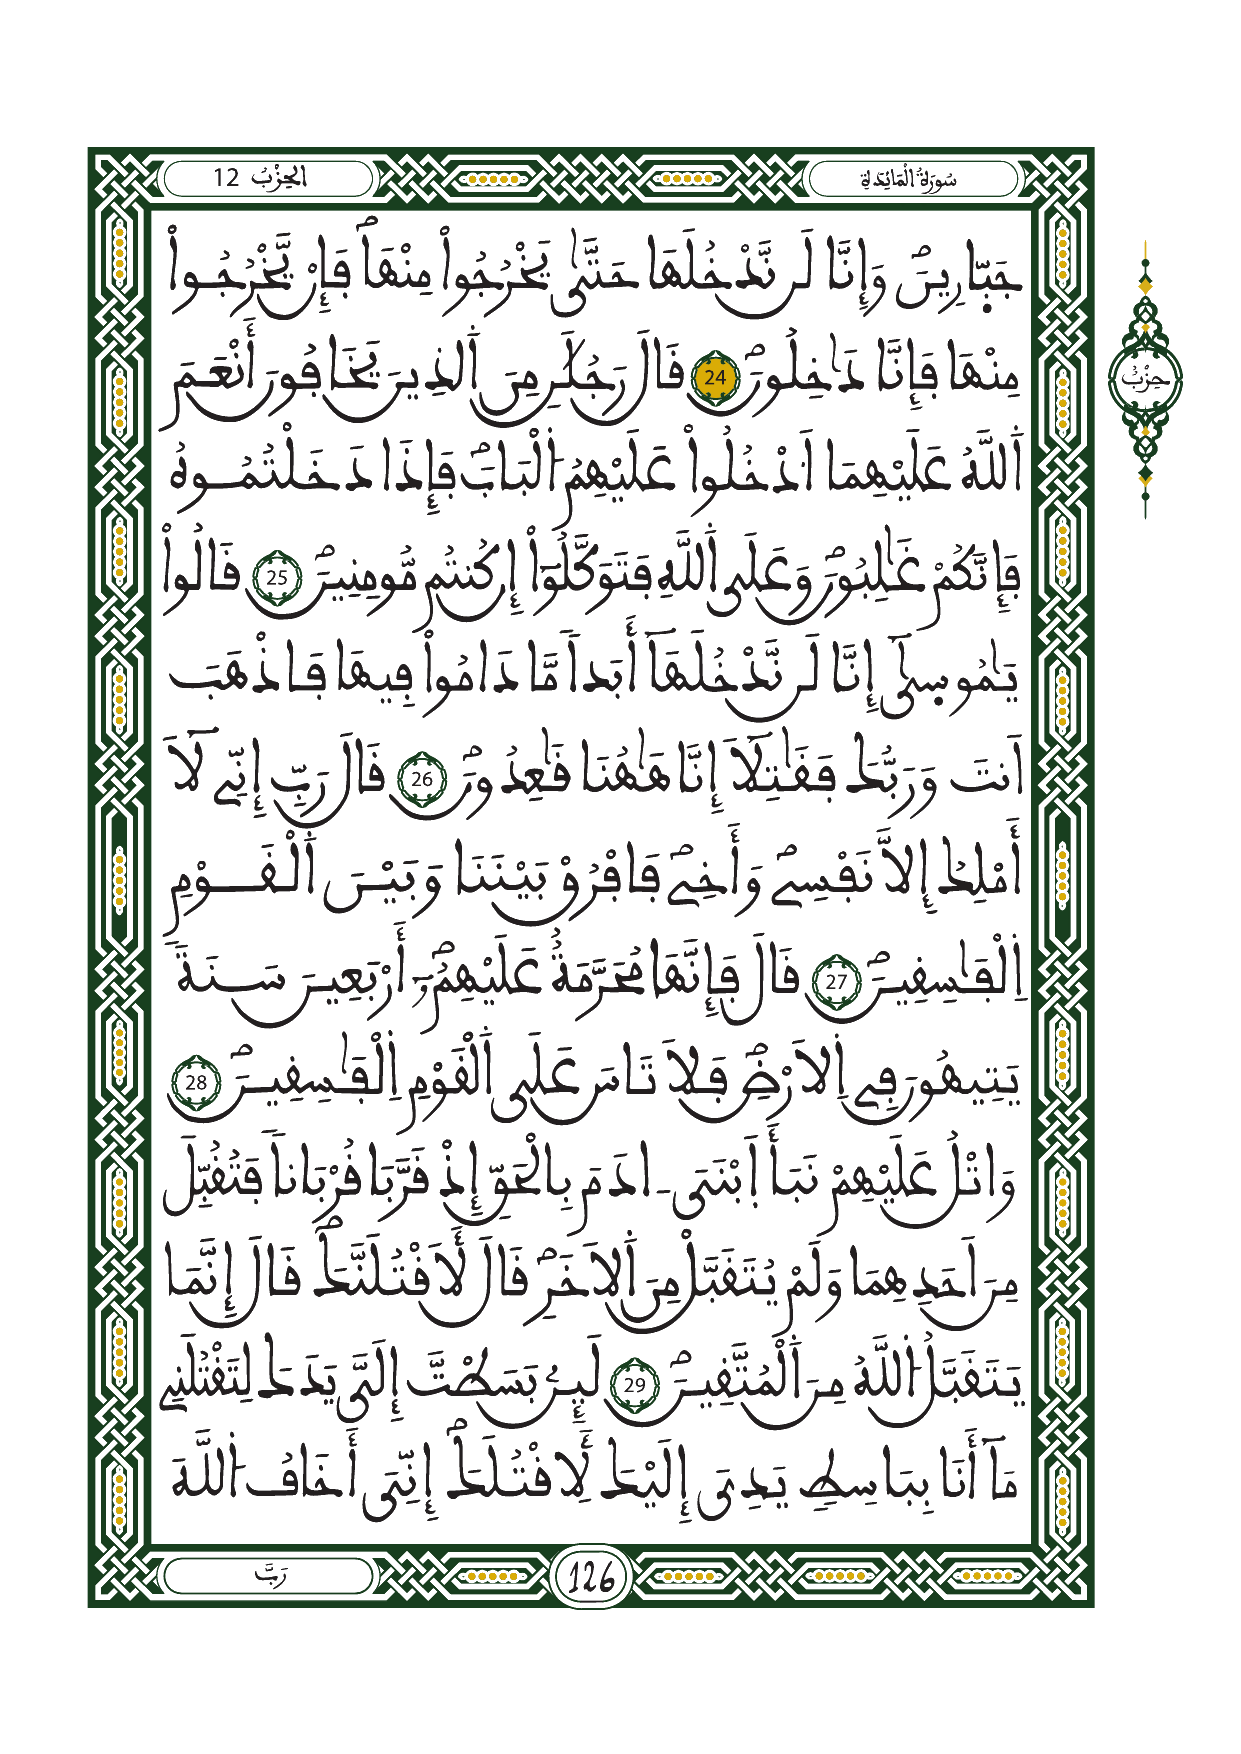 سُورَةُ الْمَائِدَةِ
الحِزْبُ 12
جَبّ۪ارِينَۖ وَإِنَّا لَن نَّدْخُلَهَا حَتَّىٰ يَخْرُجُواْ مِنْهَاۖ فَإِنْ يَّخْرُجُواْ
مِنْهَا فَإِنَّا دَٰخِلُونَۖ 24 قَالَ رَجُلَٰنِ مِنَ اَ۬لذِينَ يَخَافُونَ أَنْعَمَ
اَ۬للَّهُ عَلَيْهِمَا اَ۟دْخُلُواْ عَلَيْهِمُ اُ۬لْبَابَۖ فَإِذَا دَخَلْتُمُوهُ
فَإِنَّكُمْ غَٰلِبُونَۖ وَعَلَى اَ۬للَّهِ فَتَوَكَّلُوٓاْ إِن كُنتُم مُّومِنِينَۖ 25 قَالُواْ
يَٰمُوس۪ىٰٓ إِنَّا لَن نَّدْخُلَهَآ أَبَداٗ مَّا دَامُواْ فِيهَا فَاذْهَبَ
اَنتَ وَرَبُّكَ فَقَٰتِلَآ إِنَّا هَٰهُنَا قَٰعِدُونَۖ 26 قَالَ رَبِّ إِنِّے لَآ
أَمْلِكُ إِلاَّ نَفْسِےۖ وَأَخِےۖ فَافْرُقْ بَيْنَنَا وَبَيْنَ اَ۬لْقَوْمِ
اِ۬لْفَٰسِقِينَۖ 27 قَالَ فَإِنَّهَا مُحَرَّمَةٌ عَلَيْهِمُۥٓۖ أَرْبَعِينَ سَنَةٗ
يَتِيهُونَ فِے اِ۬لَارْضِۖ فَلَا تَاسَ عَلَى اَ۬لْقَوْمِ اِ۬لْفَٰسِقِينَۖ 28
وَاتْلُ عَلَيْهِمْ نَبَأَ اَ۪بْنَىَ اٰدَمَ بِالْحَقِّ إِذْ قَرَّبَا قُرْبَاناٗ فَتُقُبِّلَ
مِنَ اَحَدِهِمَا وَلَمْ يُتَقَبَّلْ مِنَ اَ۬لَاخَرِۖ قَالَ لَأَقْتُلَنَّكَۖ قَالَ إِنَّمَا
يَتَقَبَّلُ اُ۬للَّهُ مِنَ اَ۬لْمُتَّقِينَۖ 29 لَئِنۢ بَسَطتَّ إِلَىَّ يَدَكَ لِتَقْتُلَنِے
مَآ أَنَا بِبَاسِطٖ يَدِىَ إِلَيْكَ لِأَقْتُلَكَۖ إِنِّىَ أَخَافُ اُ۬للَّهَ
حِزْبُ
126
رَبَّ